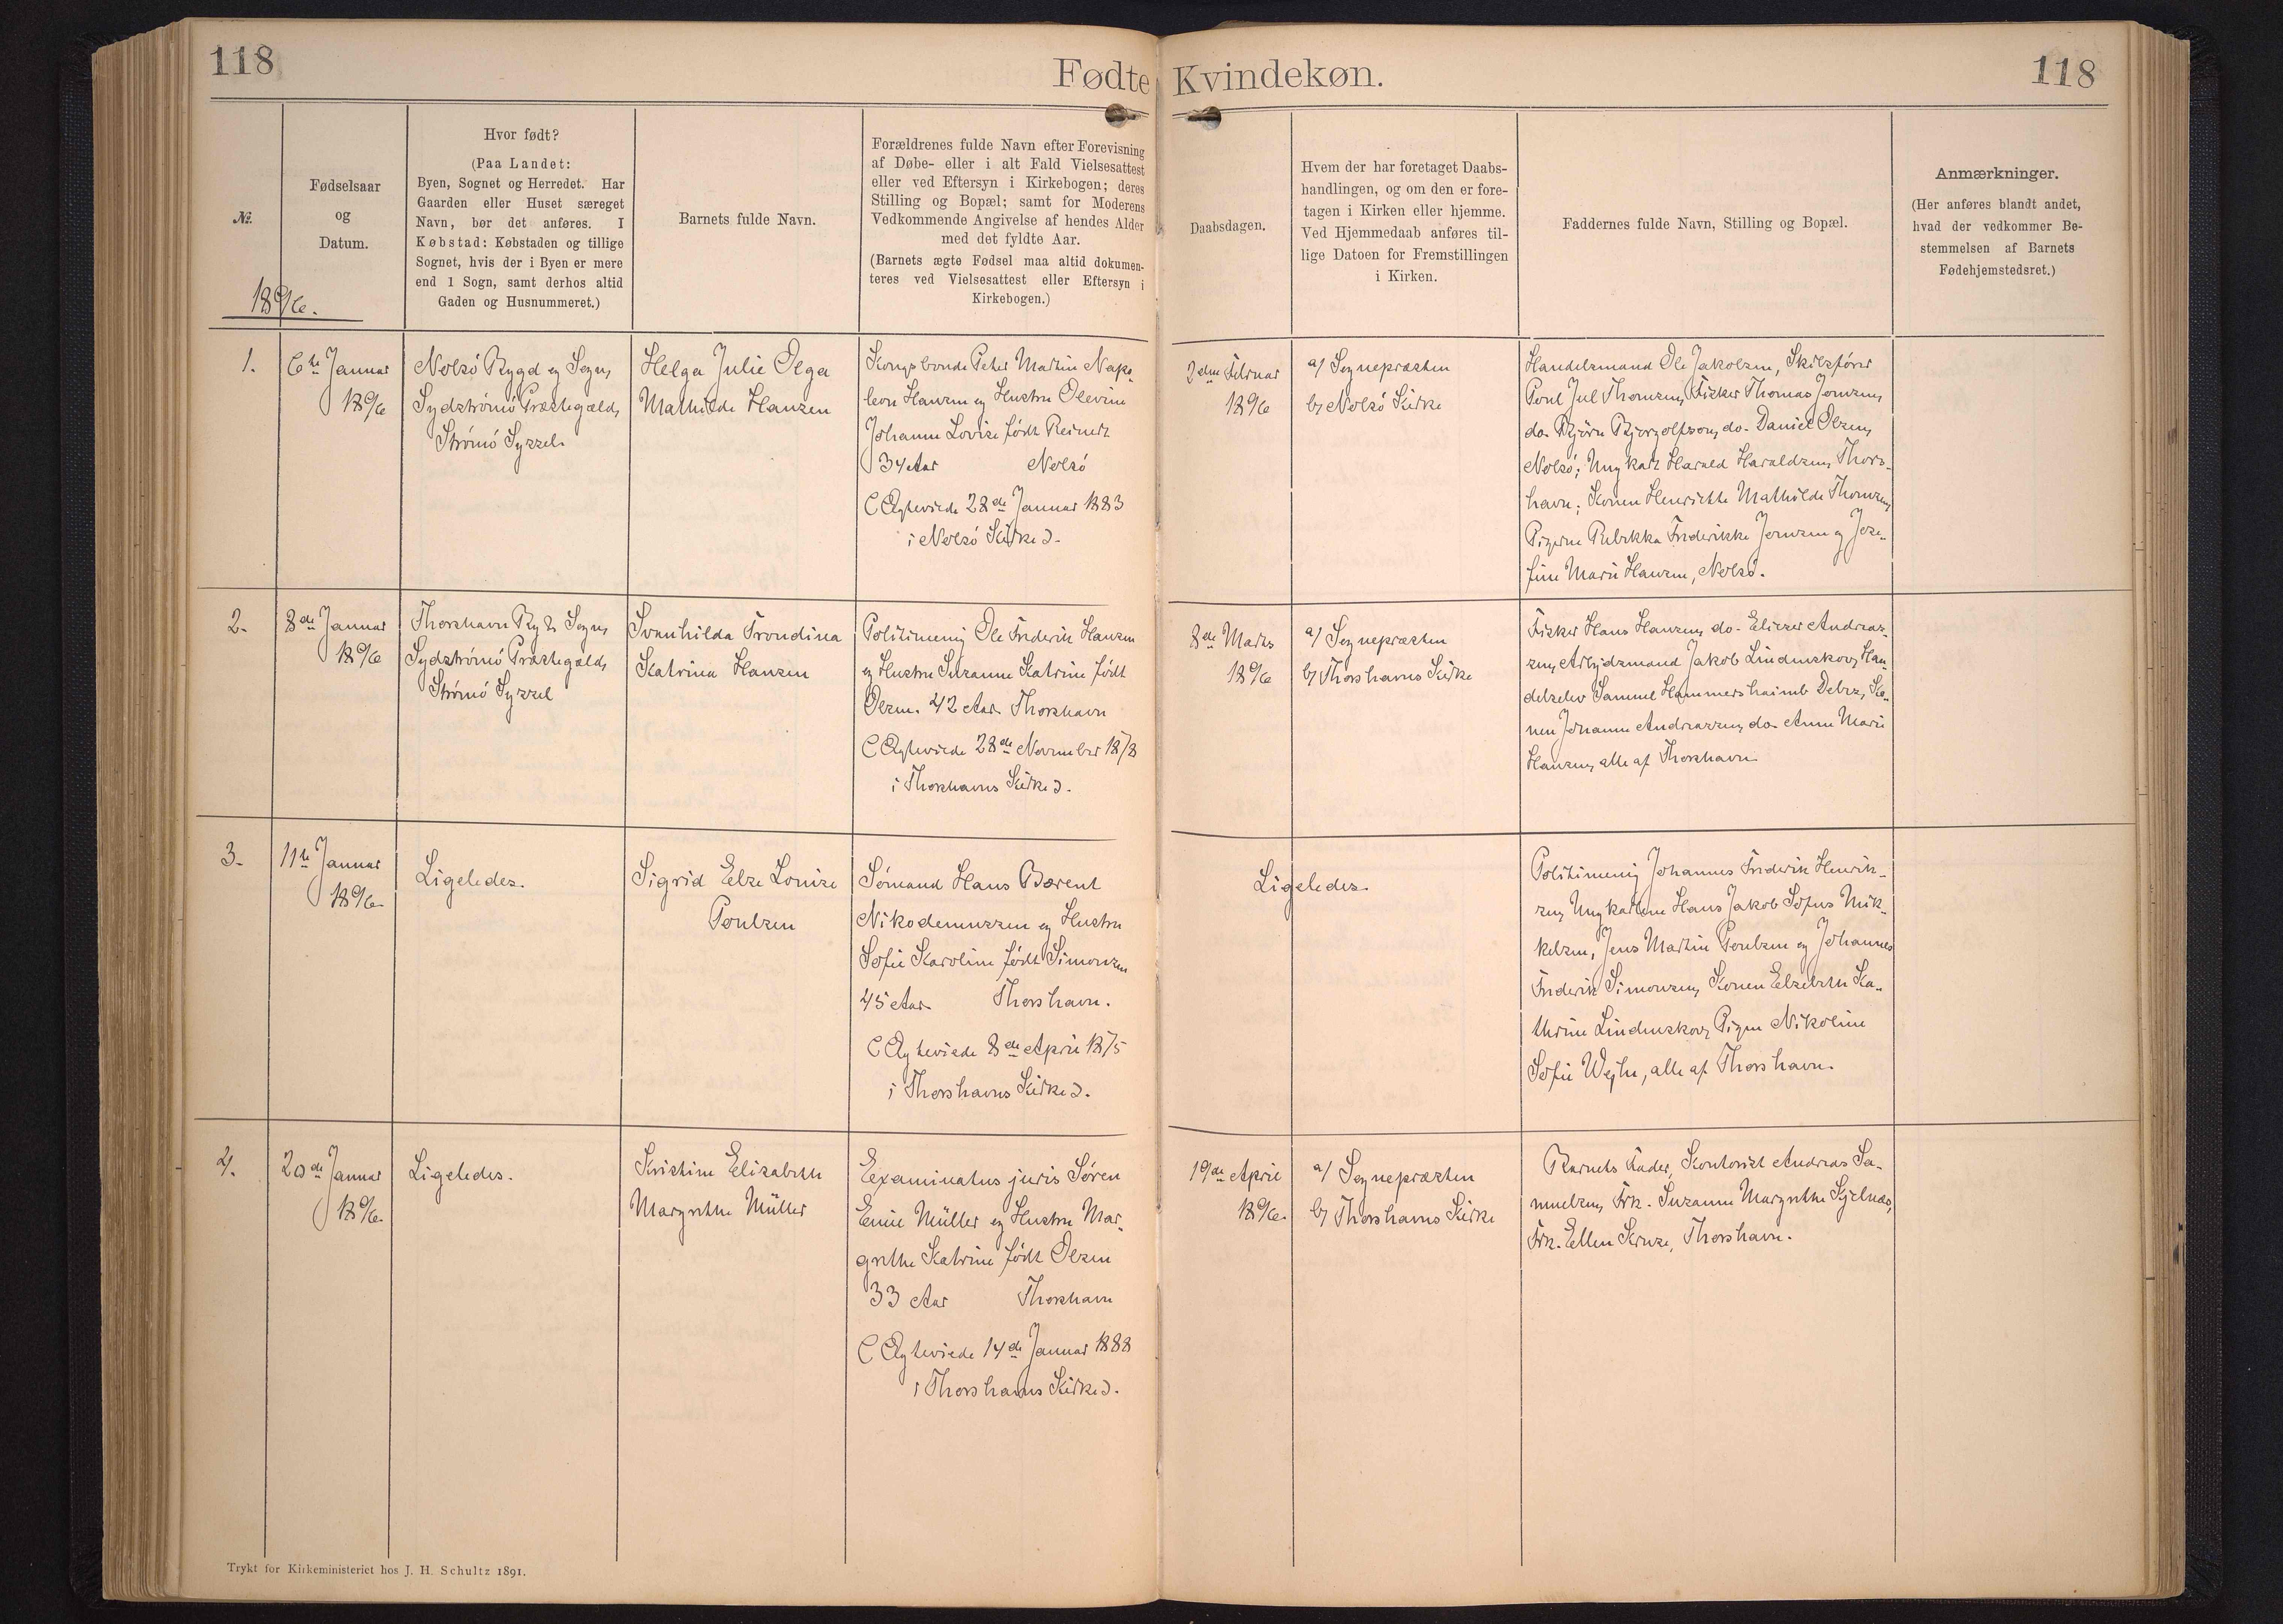 118
Fødte Kvindekøn.
118
№.
1896.
Fødselsaar
og
Datum.
Hvor født?
(Paa Landet:
Byen, Sognet og Herredet. Har
Gaarden eller Huset særeget
Navn, bør det anføres. I
Købstad: Købstaden og tillige
Sognet, hvis der i Byen er mere
end 1 Sogn, samt derhos altid
Gaden og Husnummeret.)
Barnets fulde Navn.
Forældrenes fulde Navn efter Forevisning
af Døbe- eller i alt Fald Vielsesattest
eller ved Eftersyn i Kirkebogen; deres
Stilling og Bopæl; samt for Moderens
Vedkommende Angivelse af hendes Alder
med det fyldte Aar.
(Barnets ægte Fødsel maa altid dokumen-
teres ved Vielsesattest eller Eftersyn i
Kirkebogen.)
Daabsdagen.
Hvem der har foretaget Daabs-
handlingen, og om den er fore-
tagen i Kirken eller hjemme.
Ved Hjemmedaab anføres til-
lige Datoen for Fremstillingen
i Kirken.
Faddernes fulde Navn, Stilling og Bopæl.
Anmærkninger.
(Her anføres blandt andet,
hvad der vedkommer Be-
stemmelsen af Barnets
Fødehjemstedsret.)
1.
6te Januar
1896
Nolsø Bygd og Sogn,
Sydstrømø Præstegæld,
Strømø Syssel.
Helga Julie Olga
Mathilde Hansen
Kongsbonde Peter Martin Napo-
leon Hansen og Hustru Olevine
Johanne Lovise født Reinert
34 Aar Nolsø
(Ægteviede 28de Januar 1883
i Nolsø Kirke).
2den Februar
1896
a) Sognepræsten
b) Nolsø Kirke
Handelsmand Ole Jakobsen, Skibsfører
Poul Jul Thomsen, Fisker Thomas Joensen,
do. Bjørn Bjergolfson, do. Daniel Olsen,
Nolsø; Ungkarl Harald Haraldsen, Thors-
havn; Konen Henriette Mathilde Thomsen,
Pigerne Rebekka Frederikke Joensen og Jose-
fine Marie Hansen, Nolsø.
2.
8de Januar
1896
Thorshavn By & Sogn,
Sydstrømø Præstegæld,
Strømø Syssel
Svenhilda Trondina
Katrina Hansen
Politimenig Ole Frederik Hansen
og Hustru Susanne Katrine født
Olsen. 42 Aar. Thorshavn
(Ægteviede 28de November 1878
i Thorshavns Kirke).
8de Marts
1896
a) Sognepræsten
b) Thorshavns Kirke
Fisker Hans Hansen, do. Elieser Andreas-
sen, Arbejdsmand Jakob Lindenskov, Han-
delselev Samuel Hammershaimb Debes, Ko-
nen Johanne Andreassen, do. Anne Marie
Hansen, alle af Thorshavn.
3.
11te Januar
1896.
Ligeledes.
Sigrid Else Louise
Poulsen
Sømand Hans Barent
Nikodemussen og Hustru
Sofie Karoline født Simonsen
45 Aar. Thorshavn.
(Ægteviede 8de April 1875
i Thorshavns Kirke).
Ligeledes.
Politimenig Johannes Frederik Henrik-
sen, Ungkarlene Hans Jakob Sofus Mik-
kelsen, Jens Martin Poulsen og Johannes
Frederik Simonsen, Konen Elsebeth Ka-
thrine Lindenskov, Pigen Nikoline
Sofie Wejhe, alle af Thorshavn.
4.
20de Januar
1896.
Ligeledes.
Kristine Elisabeth
Margrethe Müller
Examinatus juris Søren
Emil Müller og Hustru Mar-
grethe Katrine født Olsen
33 Aar Thorshavn
(Ægteviede 14de Januar 1888
i Thorshavns Kirke).
19de April
1896.
a) Sognepræsten
b) Thorshavns Kirke
Barnets Fader, Kontorist Andreas Sa-
muelsen, Frk. Susanne Margrethe Kjelnæs,
Frk. Ellen Kruse, Thorshavn.
Trykt for Kirkeministeriet hos J. H. Schultz 1891.